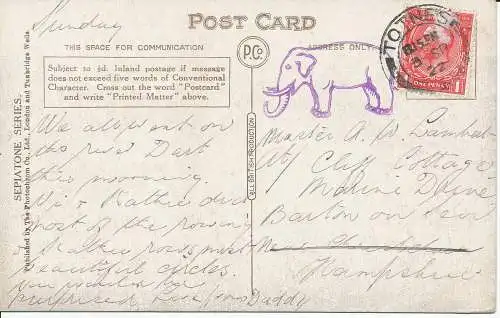 Sunday
POST CARD
THIS SPACE FOR COMMUNICATION
P.C.
ADDRESS ONLY
Subject to ½d. Inland postage if message
does not exceed five words of Conventional
Character. Cross out the word "Postcard"
and write "Printed Matter" above.
SEPIATONE SERIES.
Published by The Photochrom Co., Ltd., London and Tunbridge Wells.
ALL BRITISH PRODUCTION
TOTNES
ONE PENNY
We all went on
the river Dart
this morning.
Kathie did
most of the rowing
Kathie rows most
beautiful circles.
You would be
surprised
Love from Daddy
Master A. W. Lambert
Cliff Cottage
Marine Drive
Barton on Sea
Hampshire